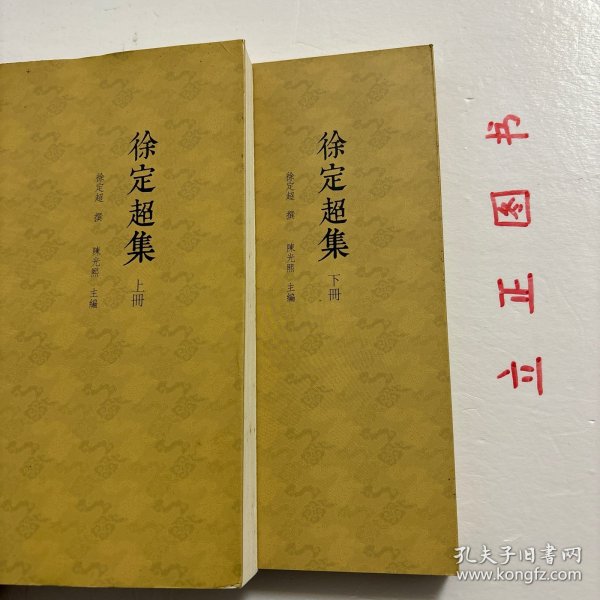 徐定超集
上冊
徐定超 撰 陳光熙 主編
徐定超集
下冊
徐定超 撰 陳光熙 主編
立正图书
孔夫子旧书网
www.kongfz.com